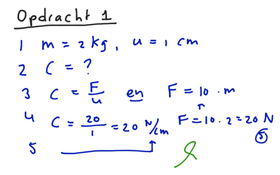 Opdracht 1
1 m = 2 kg, u = 1 cm
2 C = ?
3 C = F/u en F = 10 · m
4 C = 20/1 = 20 N/cm F = 10 · 2 = 20 N
5 5